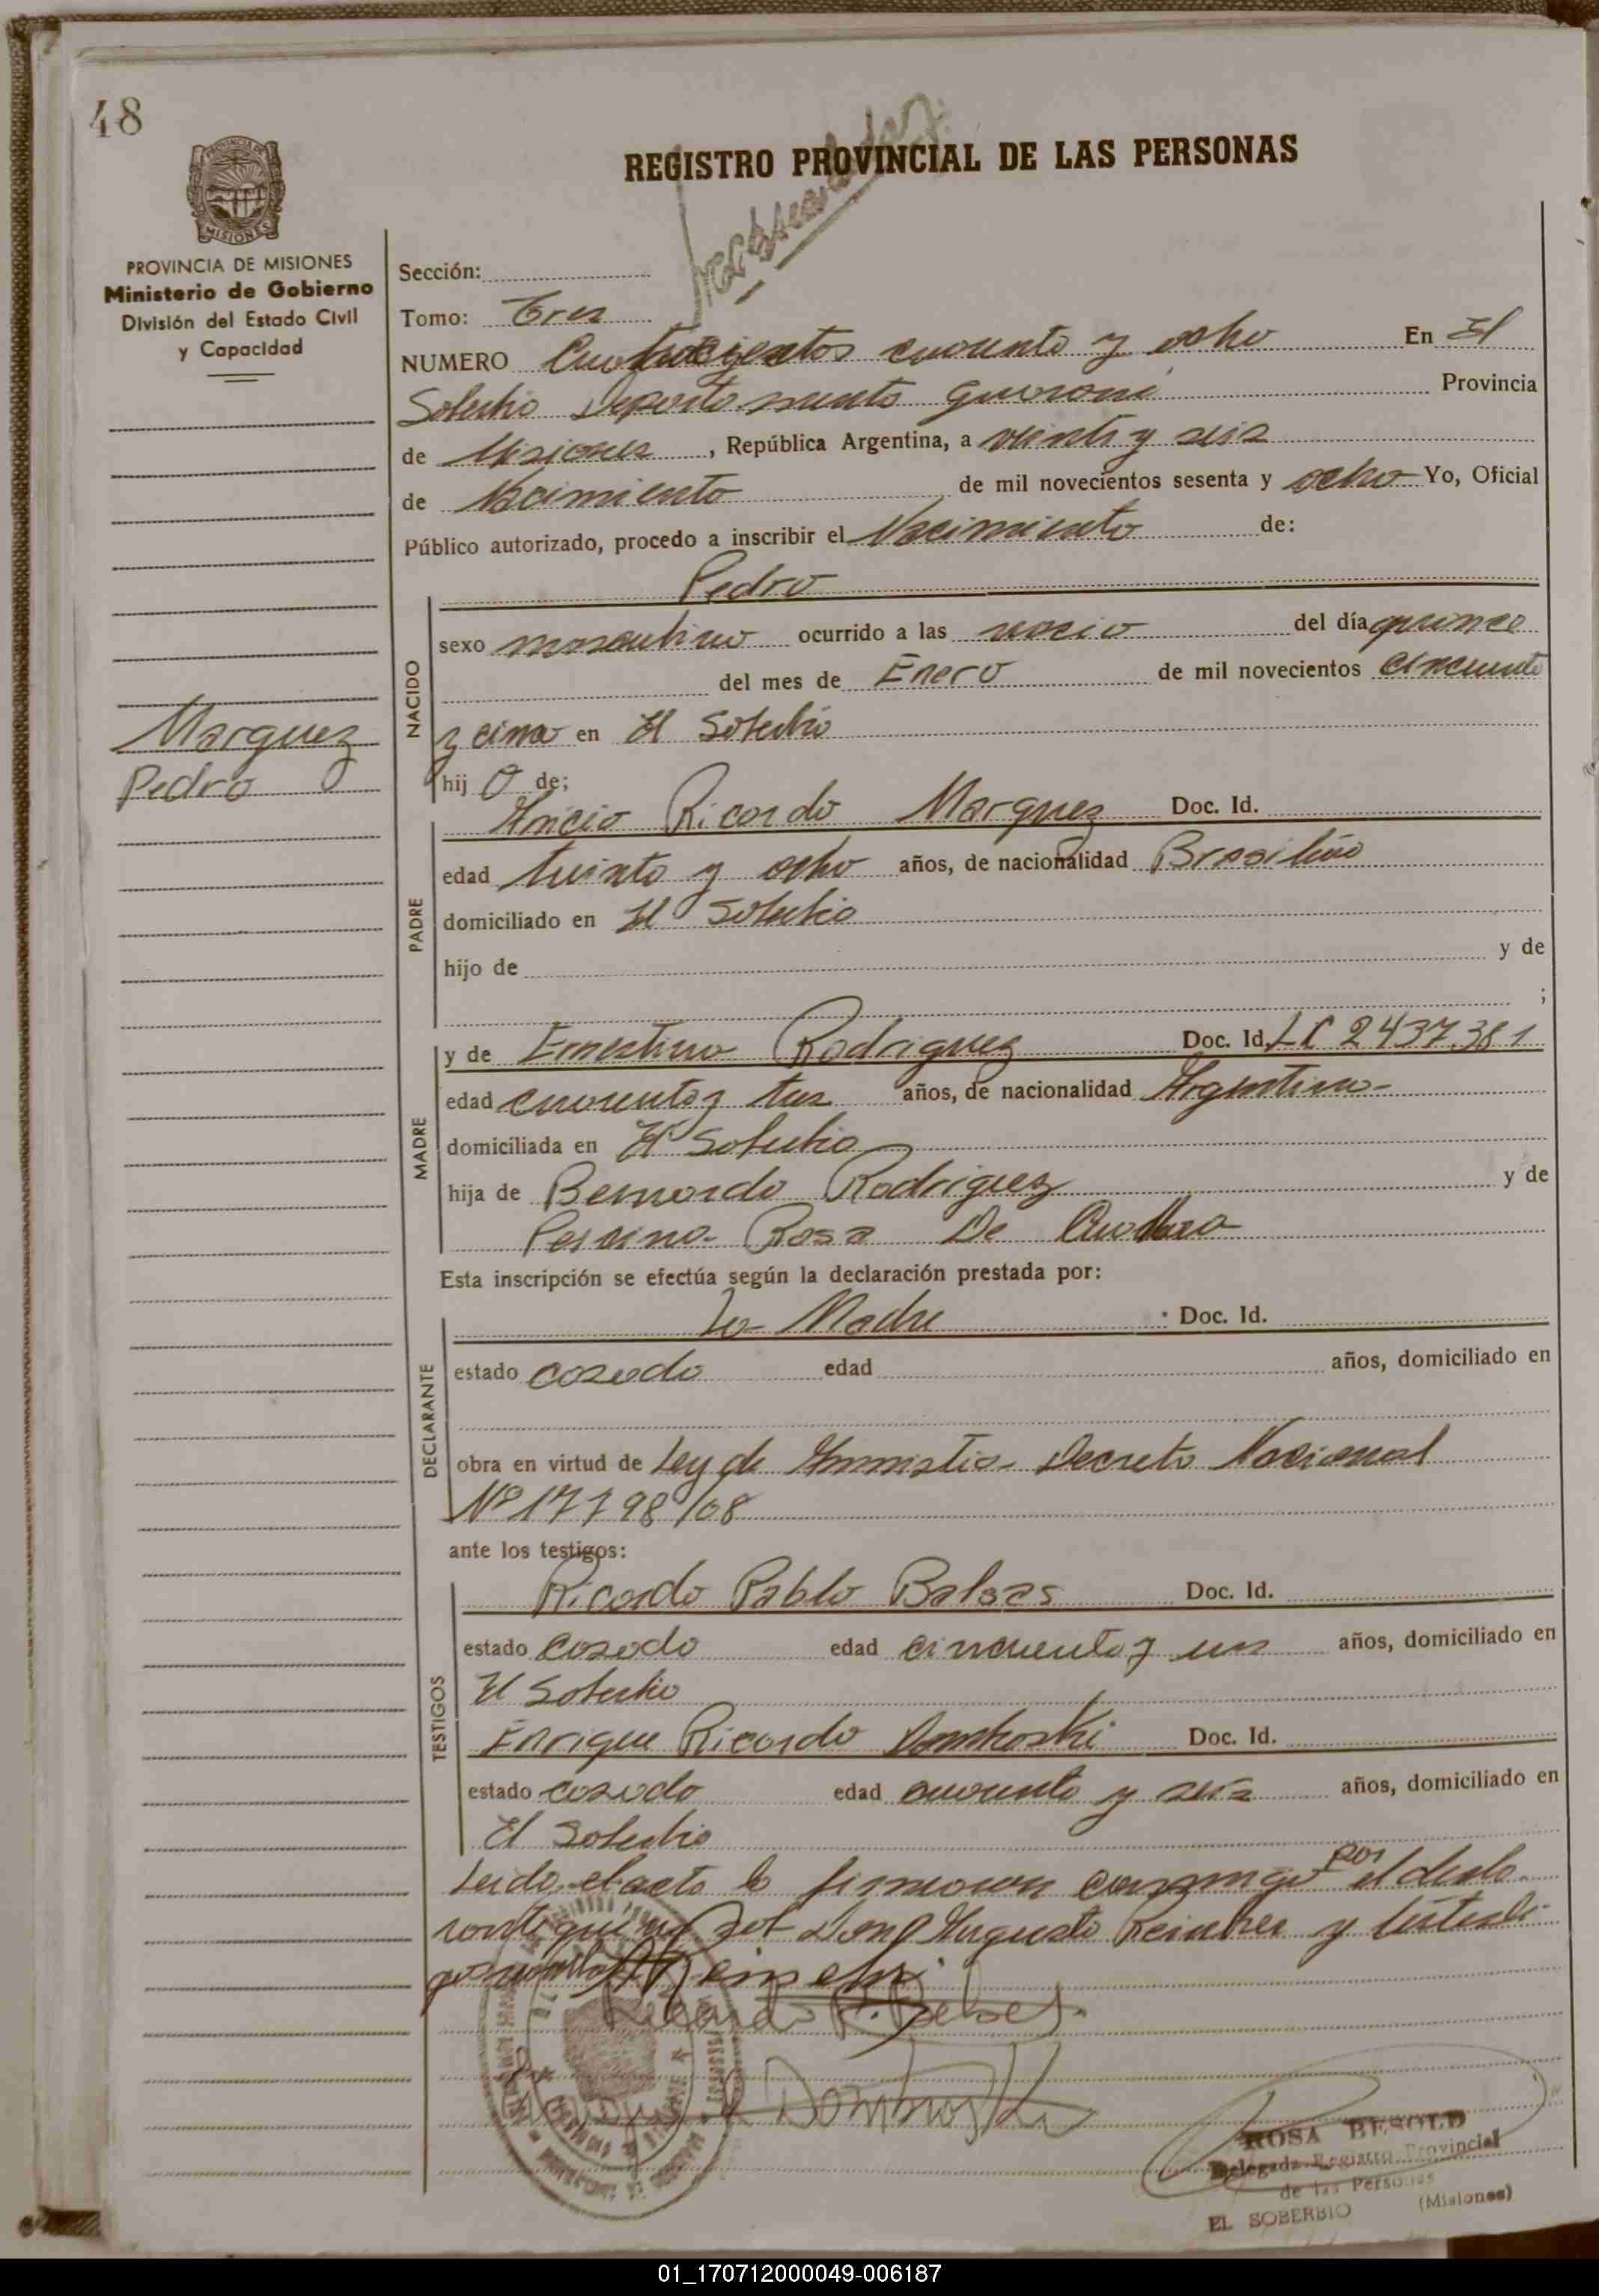 48
REGISTRO PROVINCIAL DE LAS PERSONAS
PROVINCIA DE MISIONES
MISIONES
PROVINCIA DE MISIONES
Ministerio de Gobierno
División del Estado Civil
y Capacidad
Sección:
Tomo: Tres
NUMERO Cuatrocientos cuarenta y ocho En El
Soberbio Departamento Guarani Provincia
de Misiones, República Argentina, a veinti y seis
de Nacimiento de mil novecientos sesenta y ocho Yo, Oficial
Público autorizado, procedo a inscribir el Nacimiento de:
Pedro
NACIDO
sexo masculino ocurrido a las vacio del día quince
del mes de Enero de mil novecientos cincuenta
y cinco en El Soberbio
Marquez
Pedro
hij o de;
PADRE
Anicio Ricardo Marquez Doc. Id.
edad treinta y ocho años, de nacionalidad Brasileño
domiciliado en El Soberbio
hijo de y de
;
MADRE
y de Ernestina Rodriguez Doc. Id. LC 2437381
edad cuarenta y tres años, de nacionalidad Argentina
domiciliada en El Soberbio
hija de Bernardo Rodriguez y de
Rosa De
Esta inscripción se efectúa según la declaración prestada por:
DECLARANTE
La Madre Doc. Id.
estado casada edad años, domiciliado en
obra en virtud de Ley de Amnistia Decreto Nacional
Nº 17798/68
ante los testigos:
TESTIGOS
Ricardo Pablo Balses Doc. Id.
estado casado edad cincuenta y un años, domiciliado en
El Soberbio
Enrique Ricardo Domhoski Doc. Id.
estado casado edad cuarenta y seis años, domiciliado en
El Soberbio
Leida el acta la firmaron conmigo por el decla
rante que no Don Augusto y
Ricardo P. Balses
ROSA BESOLD
Delegada Registro Provincial
de las Personas
EL SOBERBIO (Misiones)
01_170712000049-006187